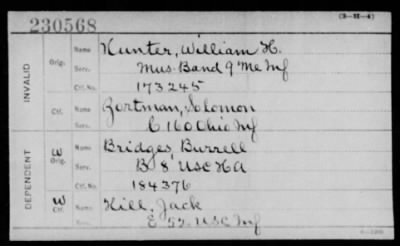 230568
(3—M—4)
INVALID
Orig.
Name Hunter, William H.
Serv. Mus. Band 9' Me Inf
Ctf. No. 173245
Ctf.
Name Zortman, Solomon
Serv. C 160 Ohio Inf
DEPENDENT
W
Orig.
Name Bridges, Burrell
Serv. B 8' USC HA
Ctf. No. 184376
W
Ctf.
Name Hill, Jack
Serv. E 52 USC Inf